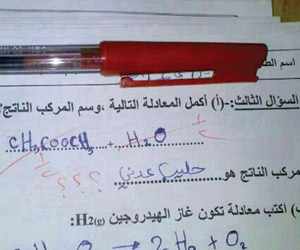 اسم الط
السؤال الثالث:-(أ) أكمل المعادلة التالية ،وسم المركب الناتج؟
CH₃COOCH₃ + H₂O
½
مركب الناتج هو... حليب عدني ؟ ؟ ؟
½
) اكتب معادلة تكون غاز الهيدروجين H₂(g):
O → 2H₂ + O₂